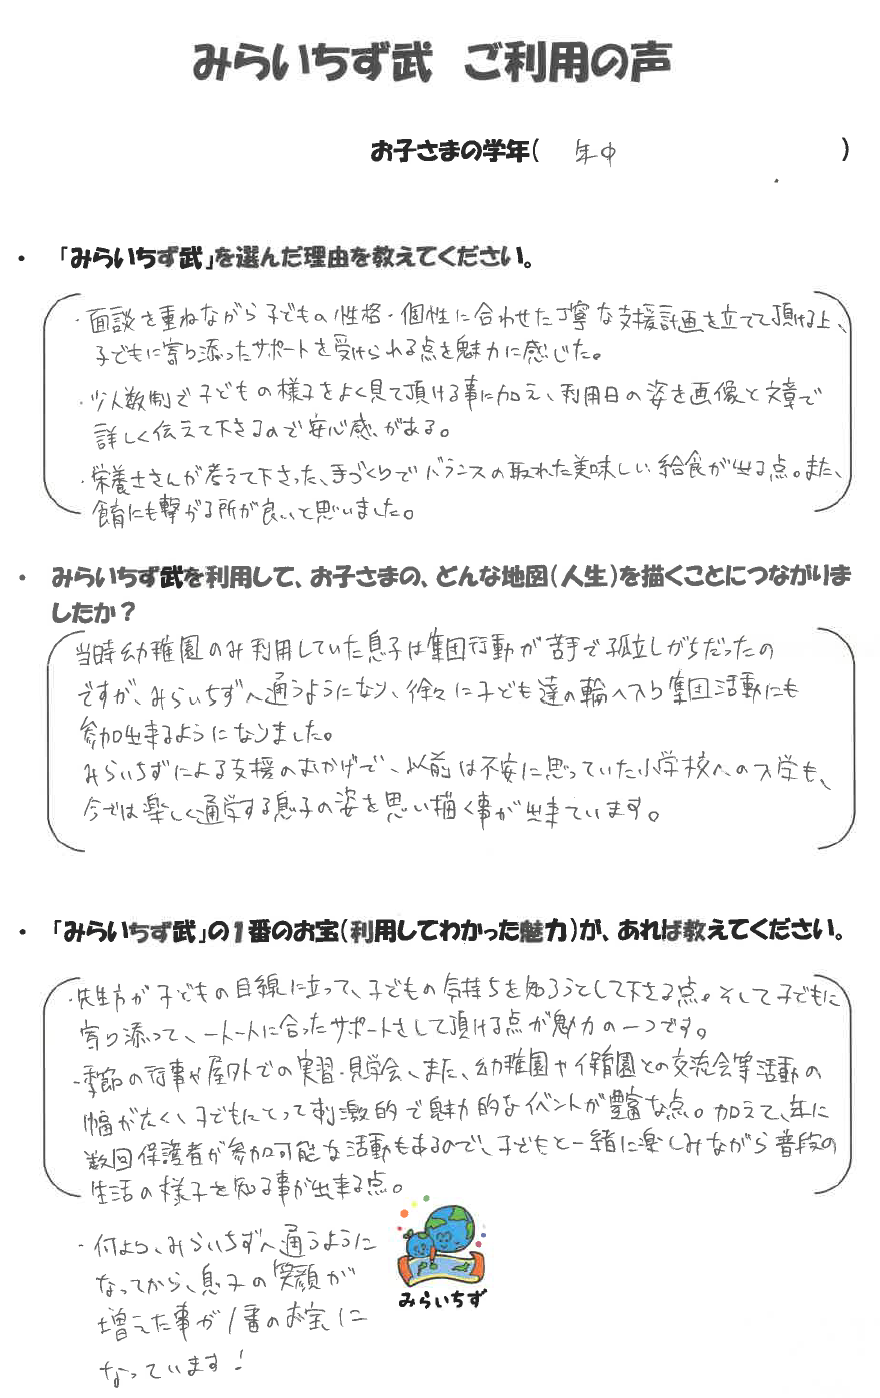 みらいちず武 ご利用の声
お子さまの学年( 年中 )
・ 「みらいちず武」を選んだ理由を教えてください。
・面談を重ねながら子どもの性格・個性に合わせた丁寧な支援計画を立てて頂ける上、
子どもに寄り添ったサポートを受けられる点を魅力に感じた。
・少人数制で子どもの様子をよく見て頂ける事に加え、利用日の姿を画像と文章で
詳しく伝えて下さるので安心感がある。
・栄養士さんが考えて下さった、手づくりでバランスの取れた美味しい給食が出る点。また、
食育にも繋がる所が良いと思いました。
・ みらいちず武を利用して、お子さまの、どんな地図(人生)を描くことにつながりま
したか？
当時幼稚園のみ利用していた息子は集団行動が苦手で孤立しがちだったの
ですが、みらいちずへ通うようになり、徐々に子ども達の輪へ入り集団活動にも
参加出来るようになりました。
みらいちずによる支援のおかげで、以前は不安に思っていた小学校への入学も、
今では楽しく通学する息子の姿を思い描く事が出来ています。
・ 「みらいちず武」の1番のお宝(利用してわかった魅力)が、あれば教えてください。
・先生方が子どもの目線に立って、子どもの気持ちを知ろうとして下さる点。そして子どもに
寄り添って、一人一人に合ったサポートをして頂ける点が魅力の一つです。
・季節の行事や屋外での実習・見学会、また、幼稚園や保育園との交流会等活動の
幅が広く、子どもにとって刺激的で魅力的なイベントが豊富な点。加えて、年に
数回保護者が参加可能な活動もあるので、子どもと一緒に楽しみながら普段の
生活の様子を知る事が出来る点。
・何より、みらいちずへ通うように
なってから、息子の笑顔が
増えた事が1番のお宝に
なっています！
みらいちず